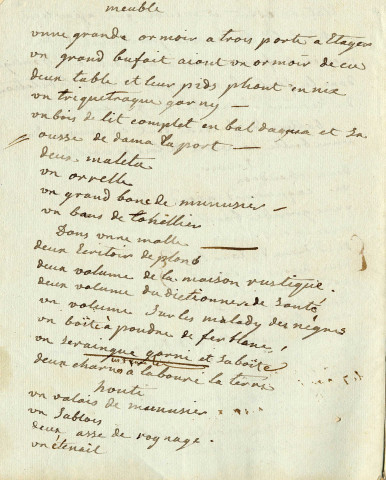 meuble
unne grande ormoir a trois porte a Etager
un grand bufait aiant un ormoir de cu
deux table et leur pids phont en nix
un triquetraque garny —
un bois de lit complet en bal daquea et sa
ousse de dama la port —
deux maleta
un orrelle
un grand banc de munusier —
un banc de tohellier
Dans unne malle —
deux Ecritoir de plonb
deux volume de la maison rustique.
deux volume du dictionnere de Santé
un volume Sur les malady des negres
un boitè a poudre de fer blanc,
un seraingue garni et sa boite
deux charus a laboure la terre
houti
un valais de munusier
un Sablois
deux asse de roynage.
un étenail